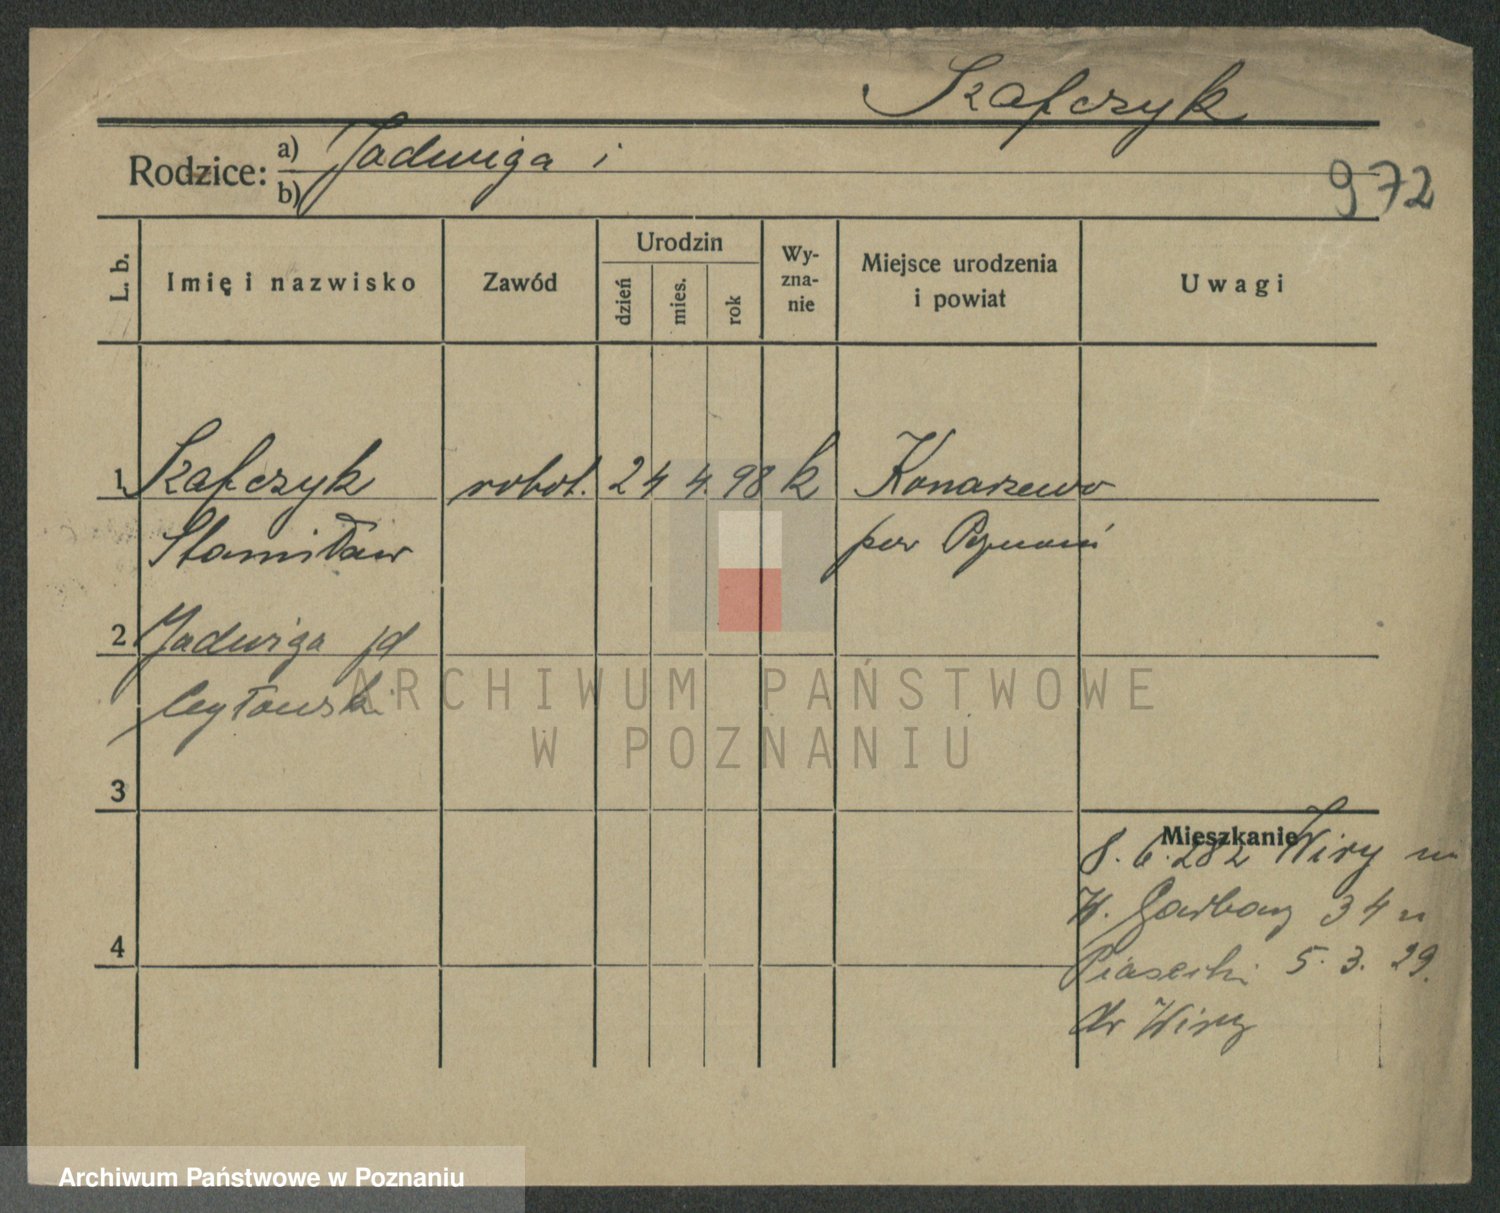 Szafczyk
Rodzice: a) Jadwiga i
b)
972
L. b.
Imię i nazwisko
Zawód
Urodzin
dzień
mies.
rok
Wy-
zna-
nie
Miejsce urodzenia
i powiat
Uwagi
1 Szafczyk robot. 24 4. 98 k Konarzewo
Stanisław pow Poznań
2 Jadwiga jd
3
4
Mieszkanie
8. 6. 282 Wiry
W. Garbary 34 u
Piasecki 5. 3. 29.
Wiry
ARCHIWUM PAŃSTWOWE
W POZNANIU
Archiwum Państwowe w Poznaniu